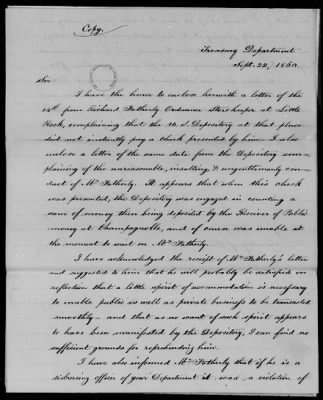 Copy.
Treasury Department
Sept. 22, 1860.
Sir
I have the honor to enclose herewith a letter of the
14th from Richard Fatherly Ordnance Storekeeper at Little
Rock, complaining that the U.S. Depository at that place
did not instantly pay a check presented by him. I also
enclose a letter of the same date from the Depository com-
plaining of the unreasonable, insulting, & ungentlemanly con-
duct of Mr. Fatherly. It appears that when this check
was presented, the Depository was engaged in counting a
sum of money then being deposited by the Receiver of Public
money at Champagnolle, and of course was unable at
the moment to wait on Mr. Fatherly.
I have acknowledged the receipt of Mr. Fatherly's letter
and suggested to him that he will probably be satisfied on
reflection that a little spirit of accommodation is necessary
to enable public as well as private business to be transacted
smoothly – and that as no want of such spirit appears
to have been manifested by the Depository, I can find no
sufficient grounds for reprehending him.
I have also informed Mr. Fatherly that if he is a
disbursing officer of your Department it was a violation of